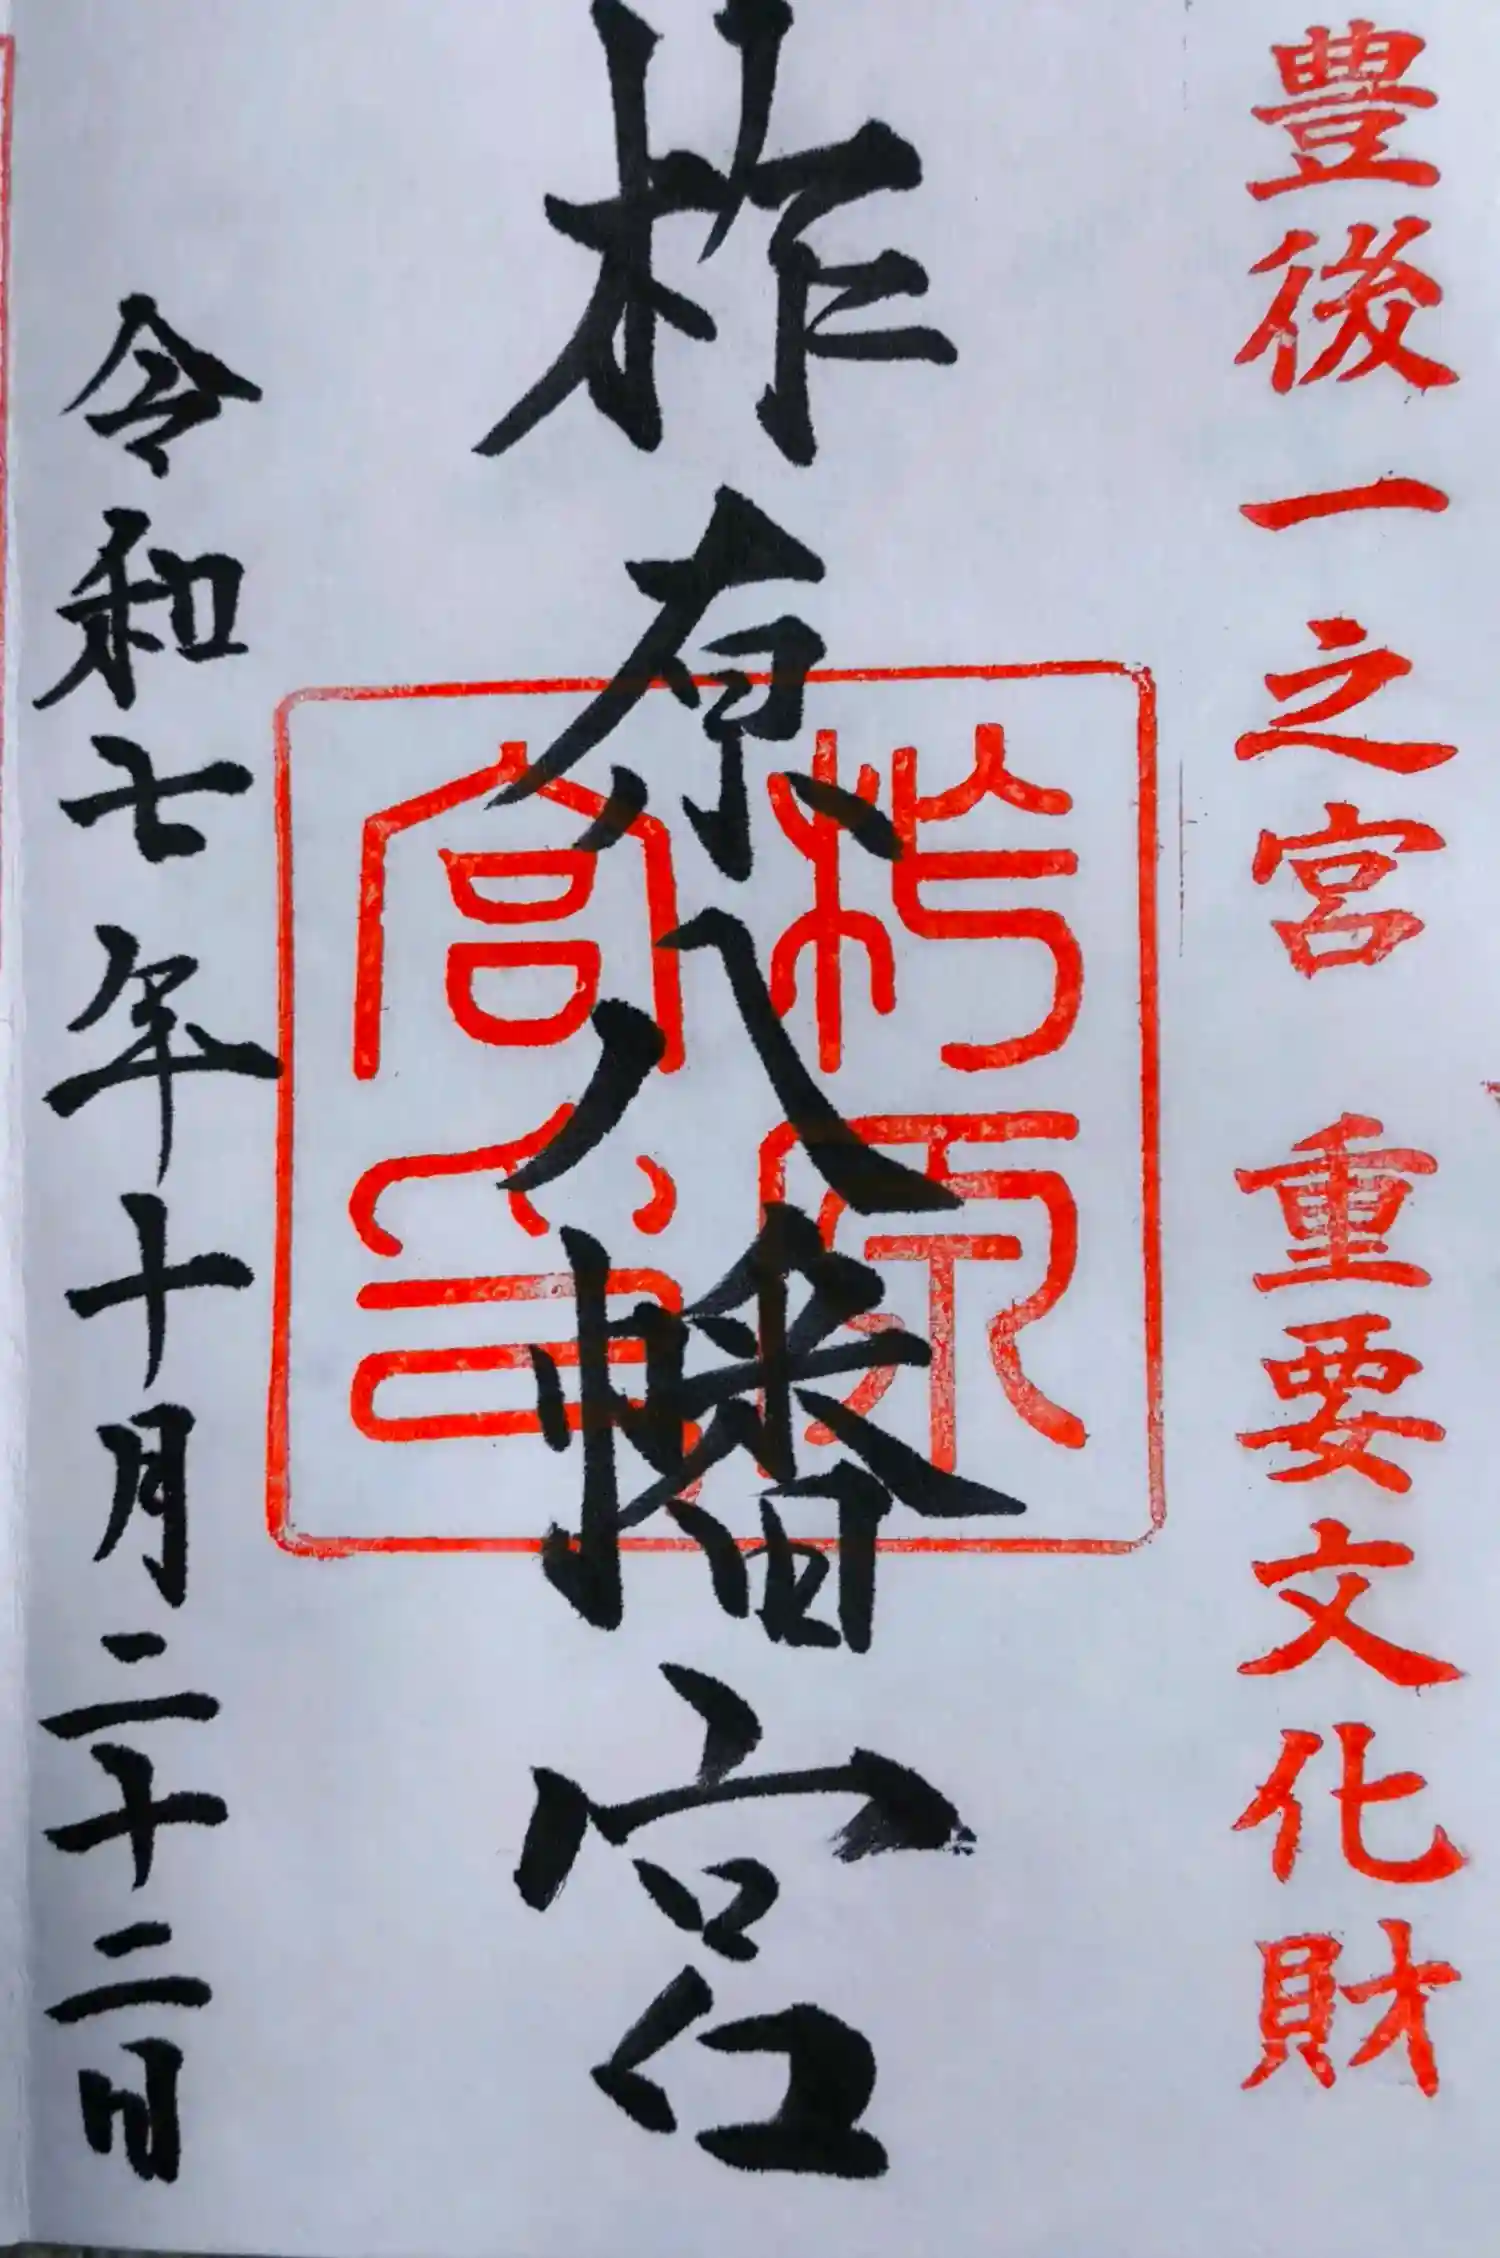 豊後一之宮 重要文化財
柞原八幡宮
柞原
宮印
令和七年十月二十二日